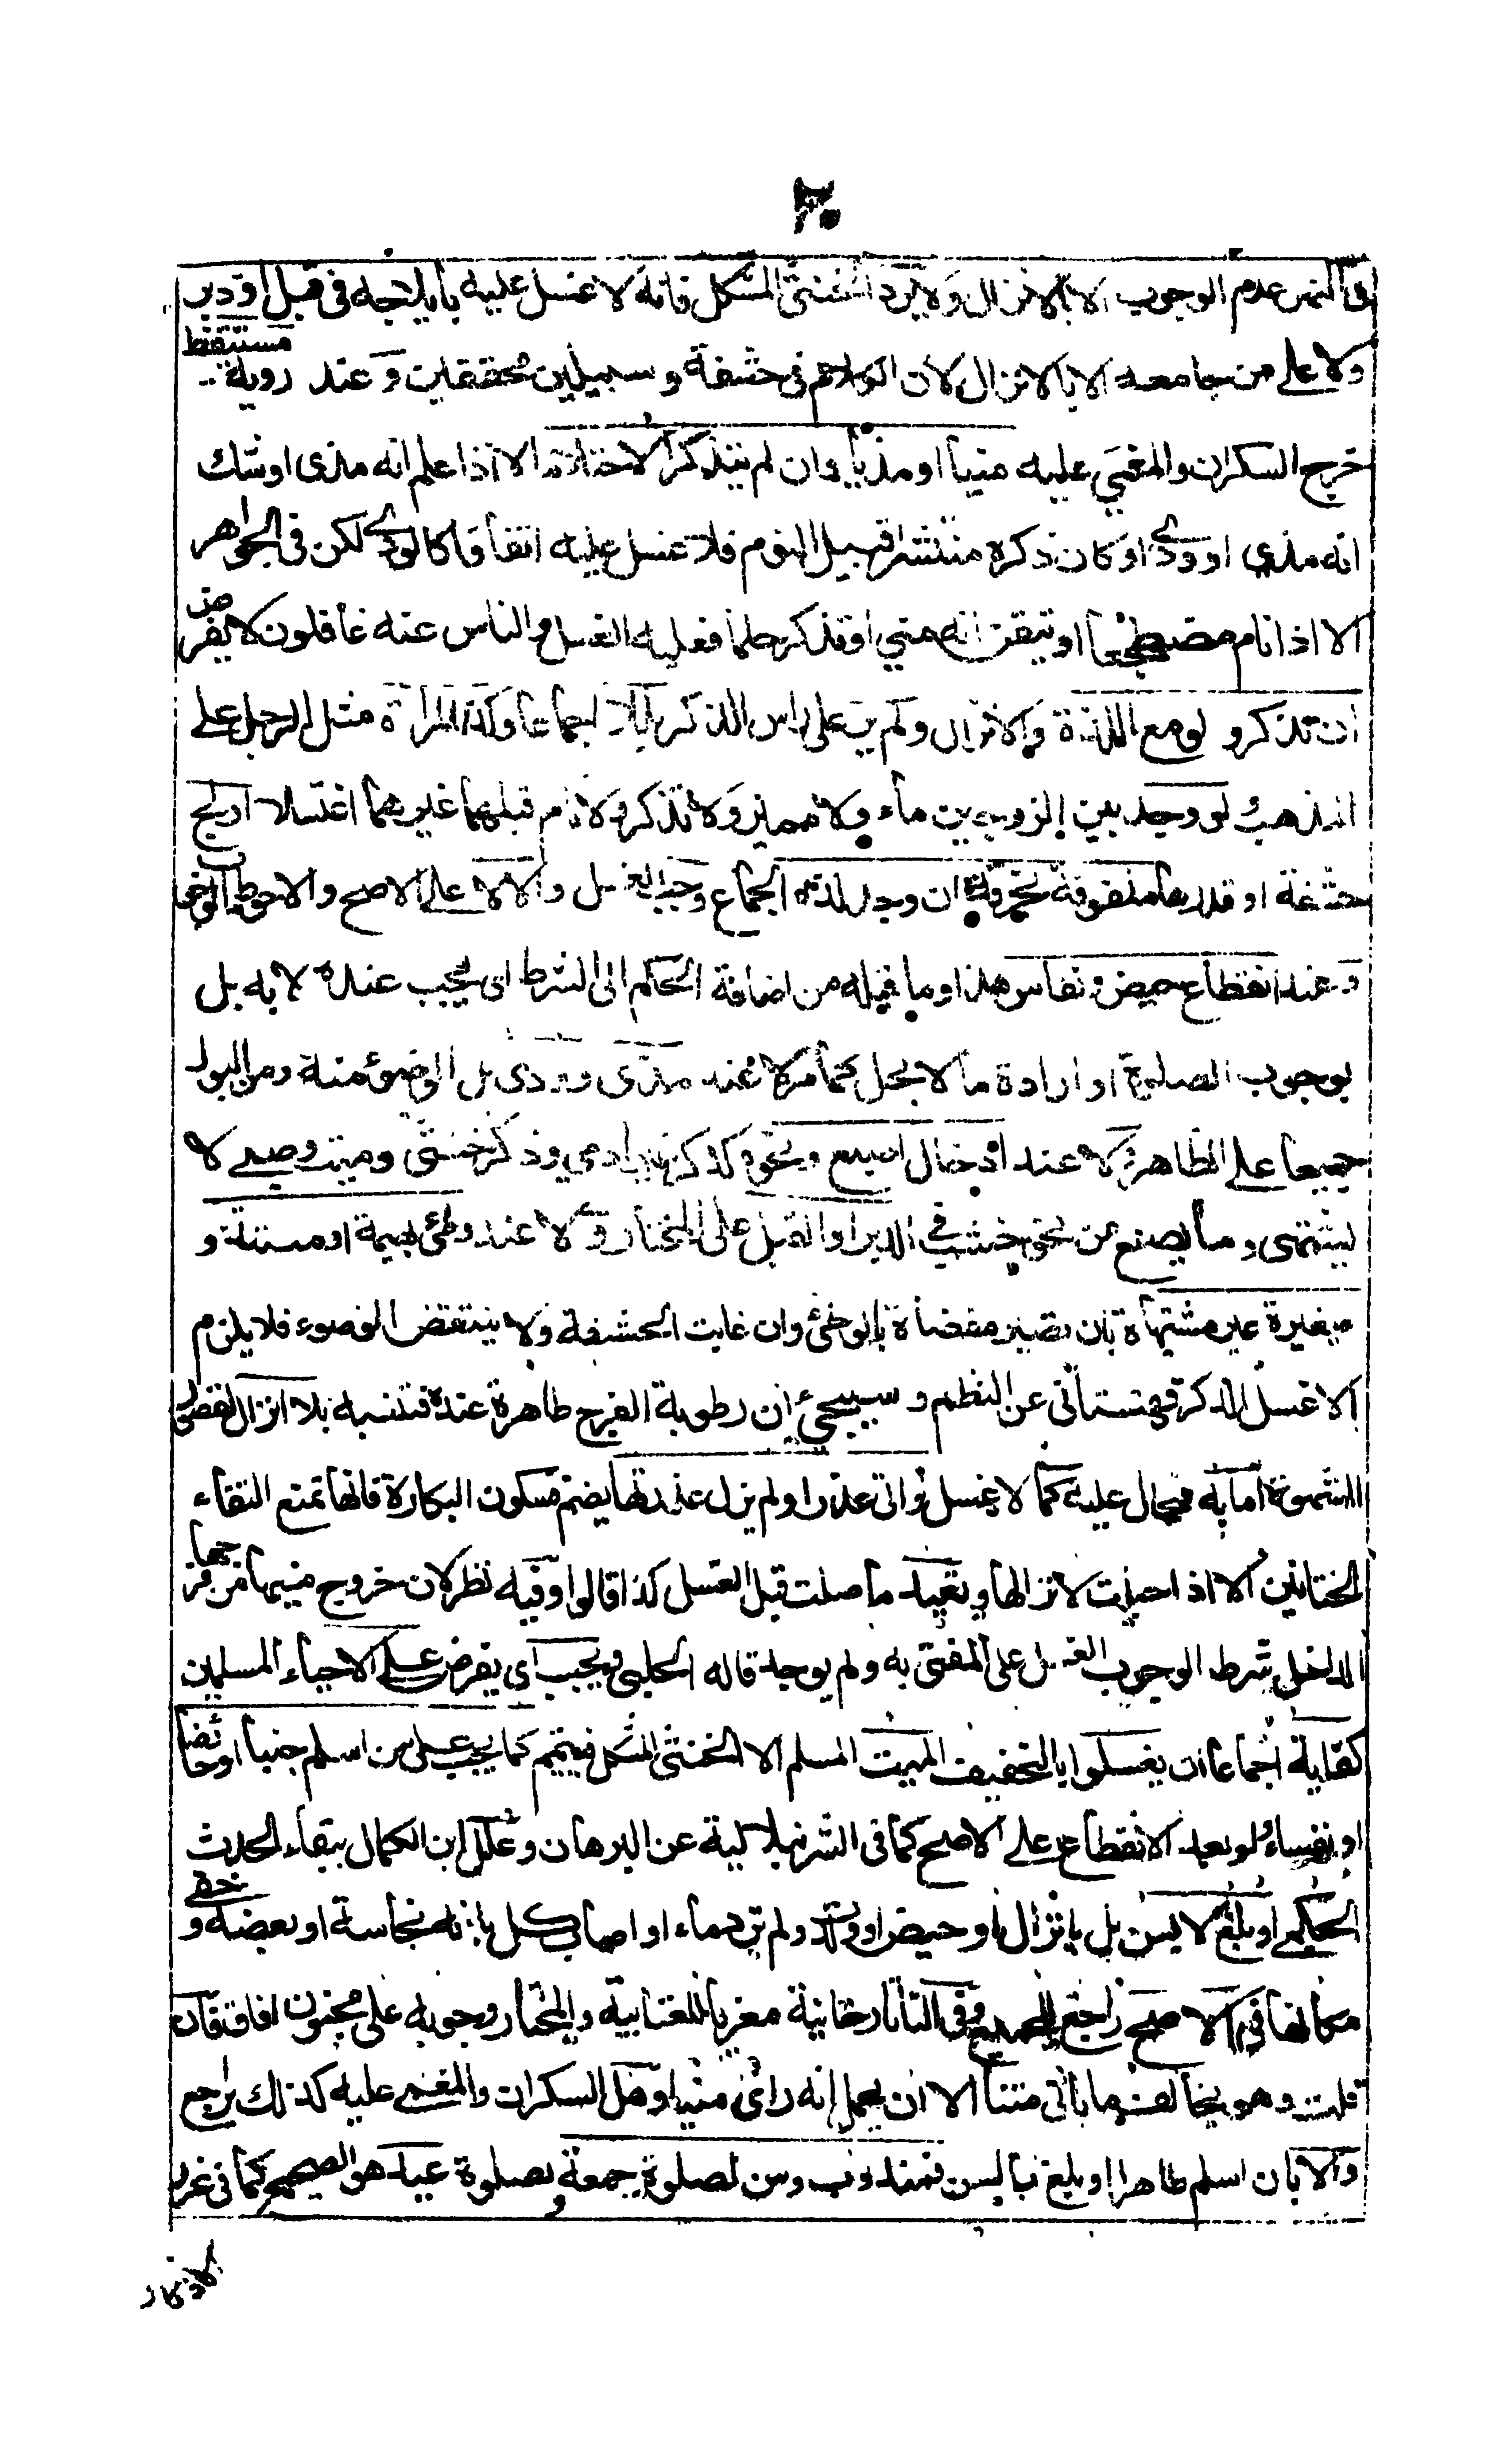 ٣٠
في النهر عدم الوجوب الا بالانزال ولا يرد الخنثى المشكل فانه لا غسل عليه بايلاجه في قبل او دبر
ولا على من جامعه الا بالانزال لان الكلام في حشفة وسبيلين محققين وعند روية مستيقظ
خرج السكران والمغمى عليه منيا او مذيا وان لم يتذكر الاحتلام الا اذا علم انه مذى او شك
انه مذي او ودي او كان ذكره منتشرا قبيل النوم فلا غسل عليه اتفاقا كالودي لكن في الجواهر
الا اذا نام مضطجعا او تيقن انه مني او تذكر حلما فعليه الغسل والناس عنه غافلون لا يفرض
ان تذكر ولو مع اللذة والانزال ولم ير على راس الذكر بللا اجماعا وكذا المراة مثل الرجل على
المذهب لو وجد بين الزوجين ماء ولا مميز ولا تذكر ولا نام قبلهما غيرهما اغتسلا اولج
حشفة او قدرها ملفوفة بخرقة ان وجد لذة الجماع وجب الغسل والا لا على الاصح والاحوط الوجوب
وعند انقطاع حيض ونفاس هذا وما قبله من اضافة الحكم الى الشرط اى يجب عنده لا به بل
بوجوب الصلوة او ارادة ما لا يحل كما مر لا عند مذى وودى بل الوضوء منه ومن البول
جميعا على الظاهر ولا عند ادخال اصبع ونحوه كذكر غير ادمي وذكر خنثى وميت وصبي لا
يشتهى وما يصنع من نحو خشب في الدبر او القبل على المختار ولا عند وطئ بهيمة او ميتة و
صغيرة غير مشتهاة بان تصير مفضاة بالوطئ وان غابت الحشفة ولا ينتقض الوضوء فلا يلزم
الا غسل الذكر قهستانى عن النظم وسيجئ ان رطوبة الفرج طاهرة عنده فتنبه بلا انزال لقصور
الشهوة اما به فيحال عليه كما لا غسل لو اتى عذرا ولم يزل عذرتها بضم فسكون البكارة فانها تمنع التقاء
الختانين الا اذا احبلت لانزالها وتعيد ما صلت قبل الغسل كذا قالوا وفيه نظر لان خروج منيها من فرجها
الداخل شرط الوجوب الغسل على المفتى به ولم يوجد قاله الحلبى ويجب اى يفرض على الاحياء المسلمين
كفاية اجماعا ان يغسلوا بالتخفيف الميت المسلم الا الخنثى المشكل فييمم كما يجب على من اسلم جنبا او حائضا
او نفساء ولو بعد الانقطاع على الاصح كما فى الشرنبلالية عن البرهان وعلل ابن الكمال ببقاء الحدث
الحكمي او بلغ لا بسن بل بانزال او حيض او ولدت ولم تر دماء او اصاب كل بدنه نجاسة او بعضه و خفى
مكانها في الاصح راجع للجميع وفى التاتارخانية معزيا للعتابية والمختار وجوبه على مجنون افاق قال
قلت وهو يخالف ما ياتى متنا الا ان يحمل انه راى منيا وهل السكران والمغمى عليه كذلك يراجع
والا بان اسلم طاهرا او بلغ بالسن فمندوب وسن لصلوة جمعة ولصلوة عيد هو الصحيح كما فى غرر
الاذكار